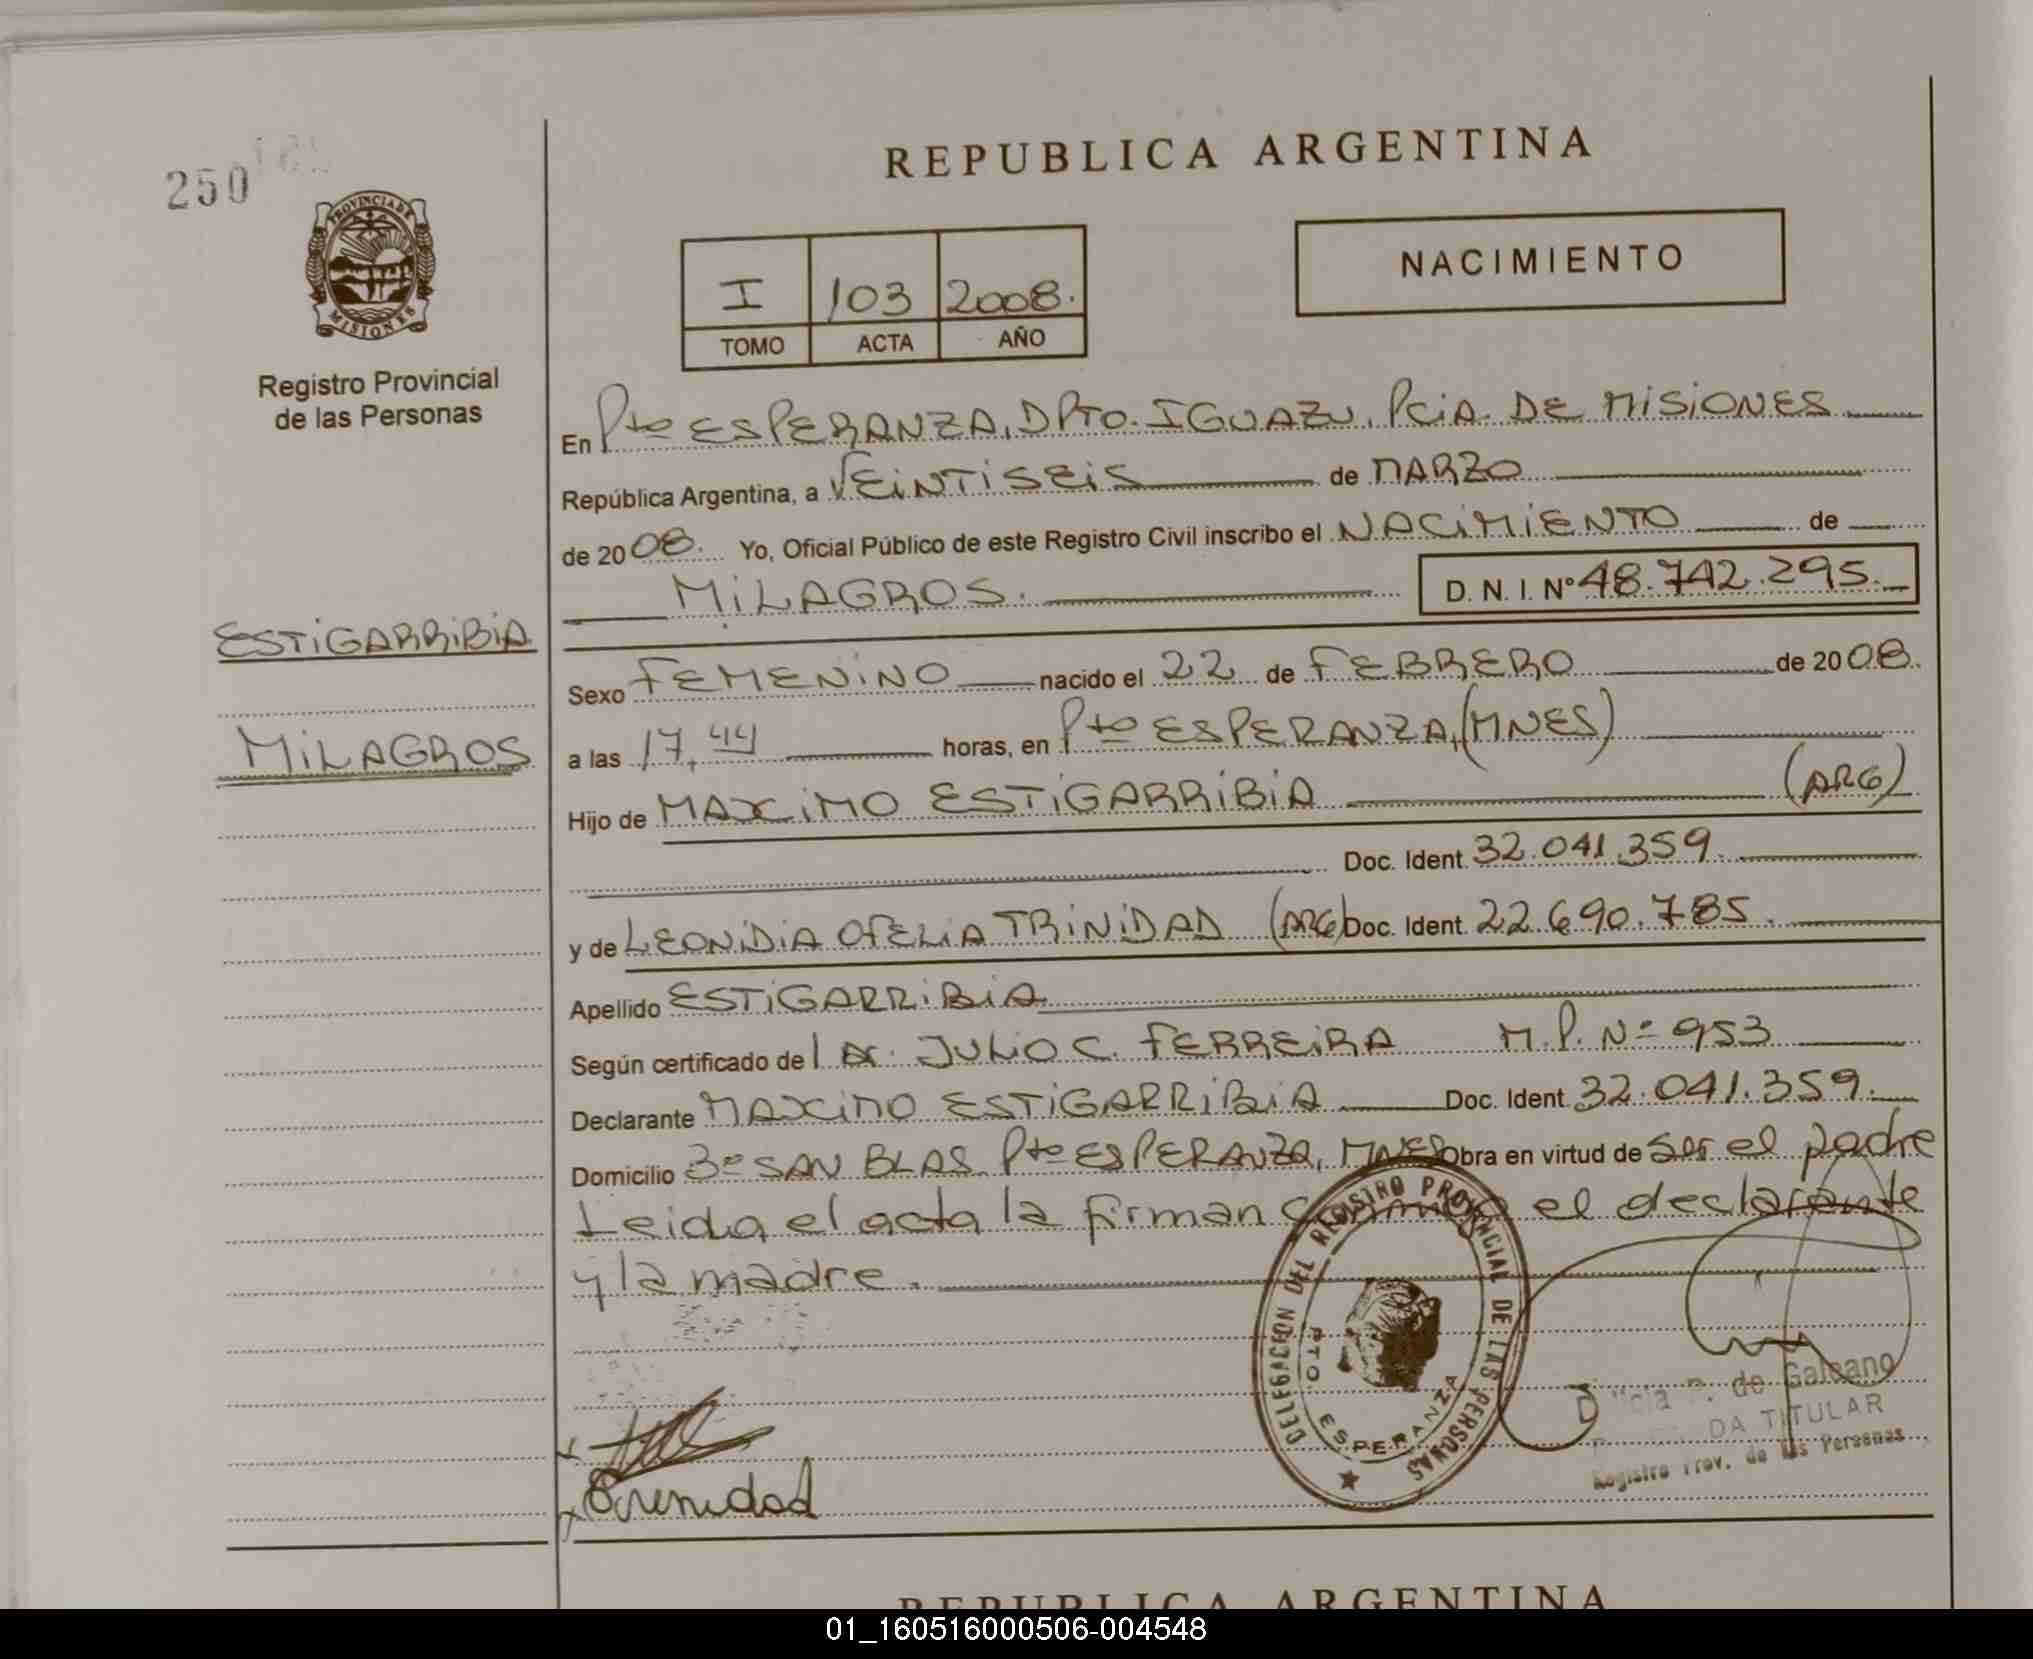 250
PROVINCIA DE
MISIONES
Registro Provincial
de las Personas
ESTIGARRIBIA
MILAGROS
REPUBLICA ARGENTINA
I 103 2008.
TOMO ACTA AÑO
NACIMIENTO
En Pto ESPERANZA, DPTO. IGUAZU, PCIA. DE MISIONES
República Argentina, a VEINTISEIS de MARZO
de 2008. Yo, Oficial Público de este Registro Civil inscribo el NACIMIENTO de
MILAGROS. D. N. I. Nº 48.742.295.
Sexo FEMENINO nacido el 22 de FEBRERO de 2008.
a las 17,44 horas, en Pto ESPERANZA, (MNES)
Hijo de MAXIMO ESTIGARRIBIA (ARG)
Doc. Ident. 32.041.359.
y de LEONIDIA OFELIA TRINIDAD (ARG) Doc. Ident. 22.690.785.
Apellido ESTIGARRIBIA
Según certificado de JULIO C. FERREIRA M.P. Nº 953
Declarante MAXIMO ESTIGARRIBIA Doc. Ident. 32.041.359.
Domicilio Bº SAN BLAS Pto ESPERANZA, MNES Obra en virtud de ser el padre
Leida el acta la firman conmigo el declarante
y la madre.
DELEGACION DEL REGISTRO PROVINCIAL DE LAS PERSONAS
PTO. ESPERANZA
de Galeano
TITULAR
Registro Prov. de las Personas
REPUBLICA ARGENTINA
01_160516000506-004548